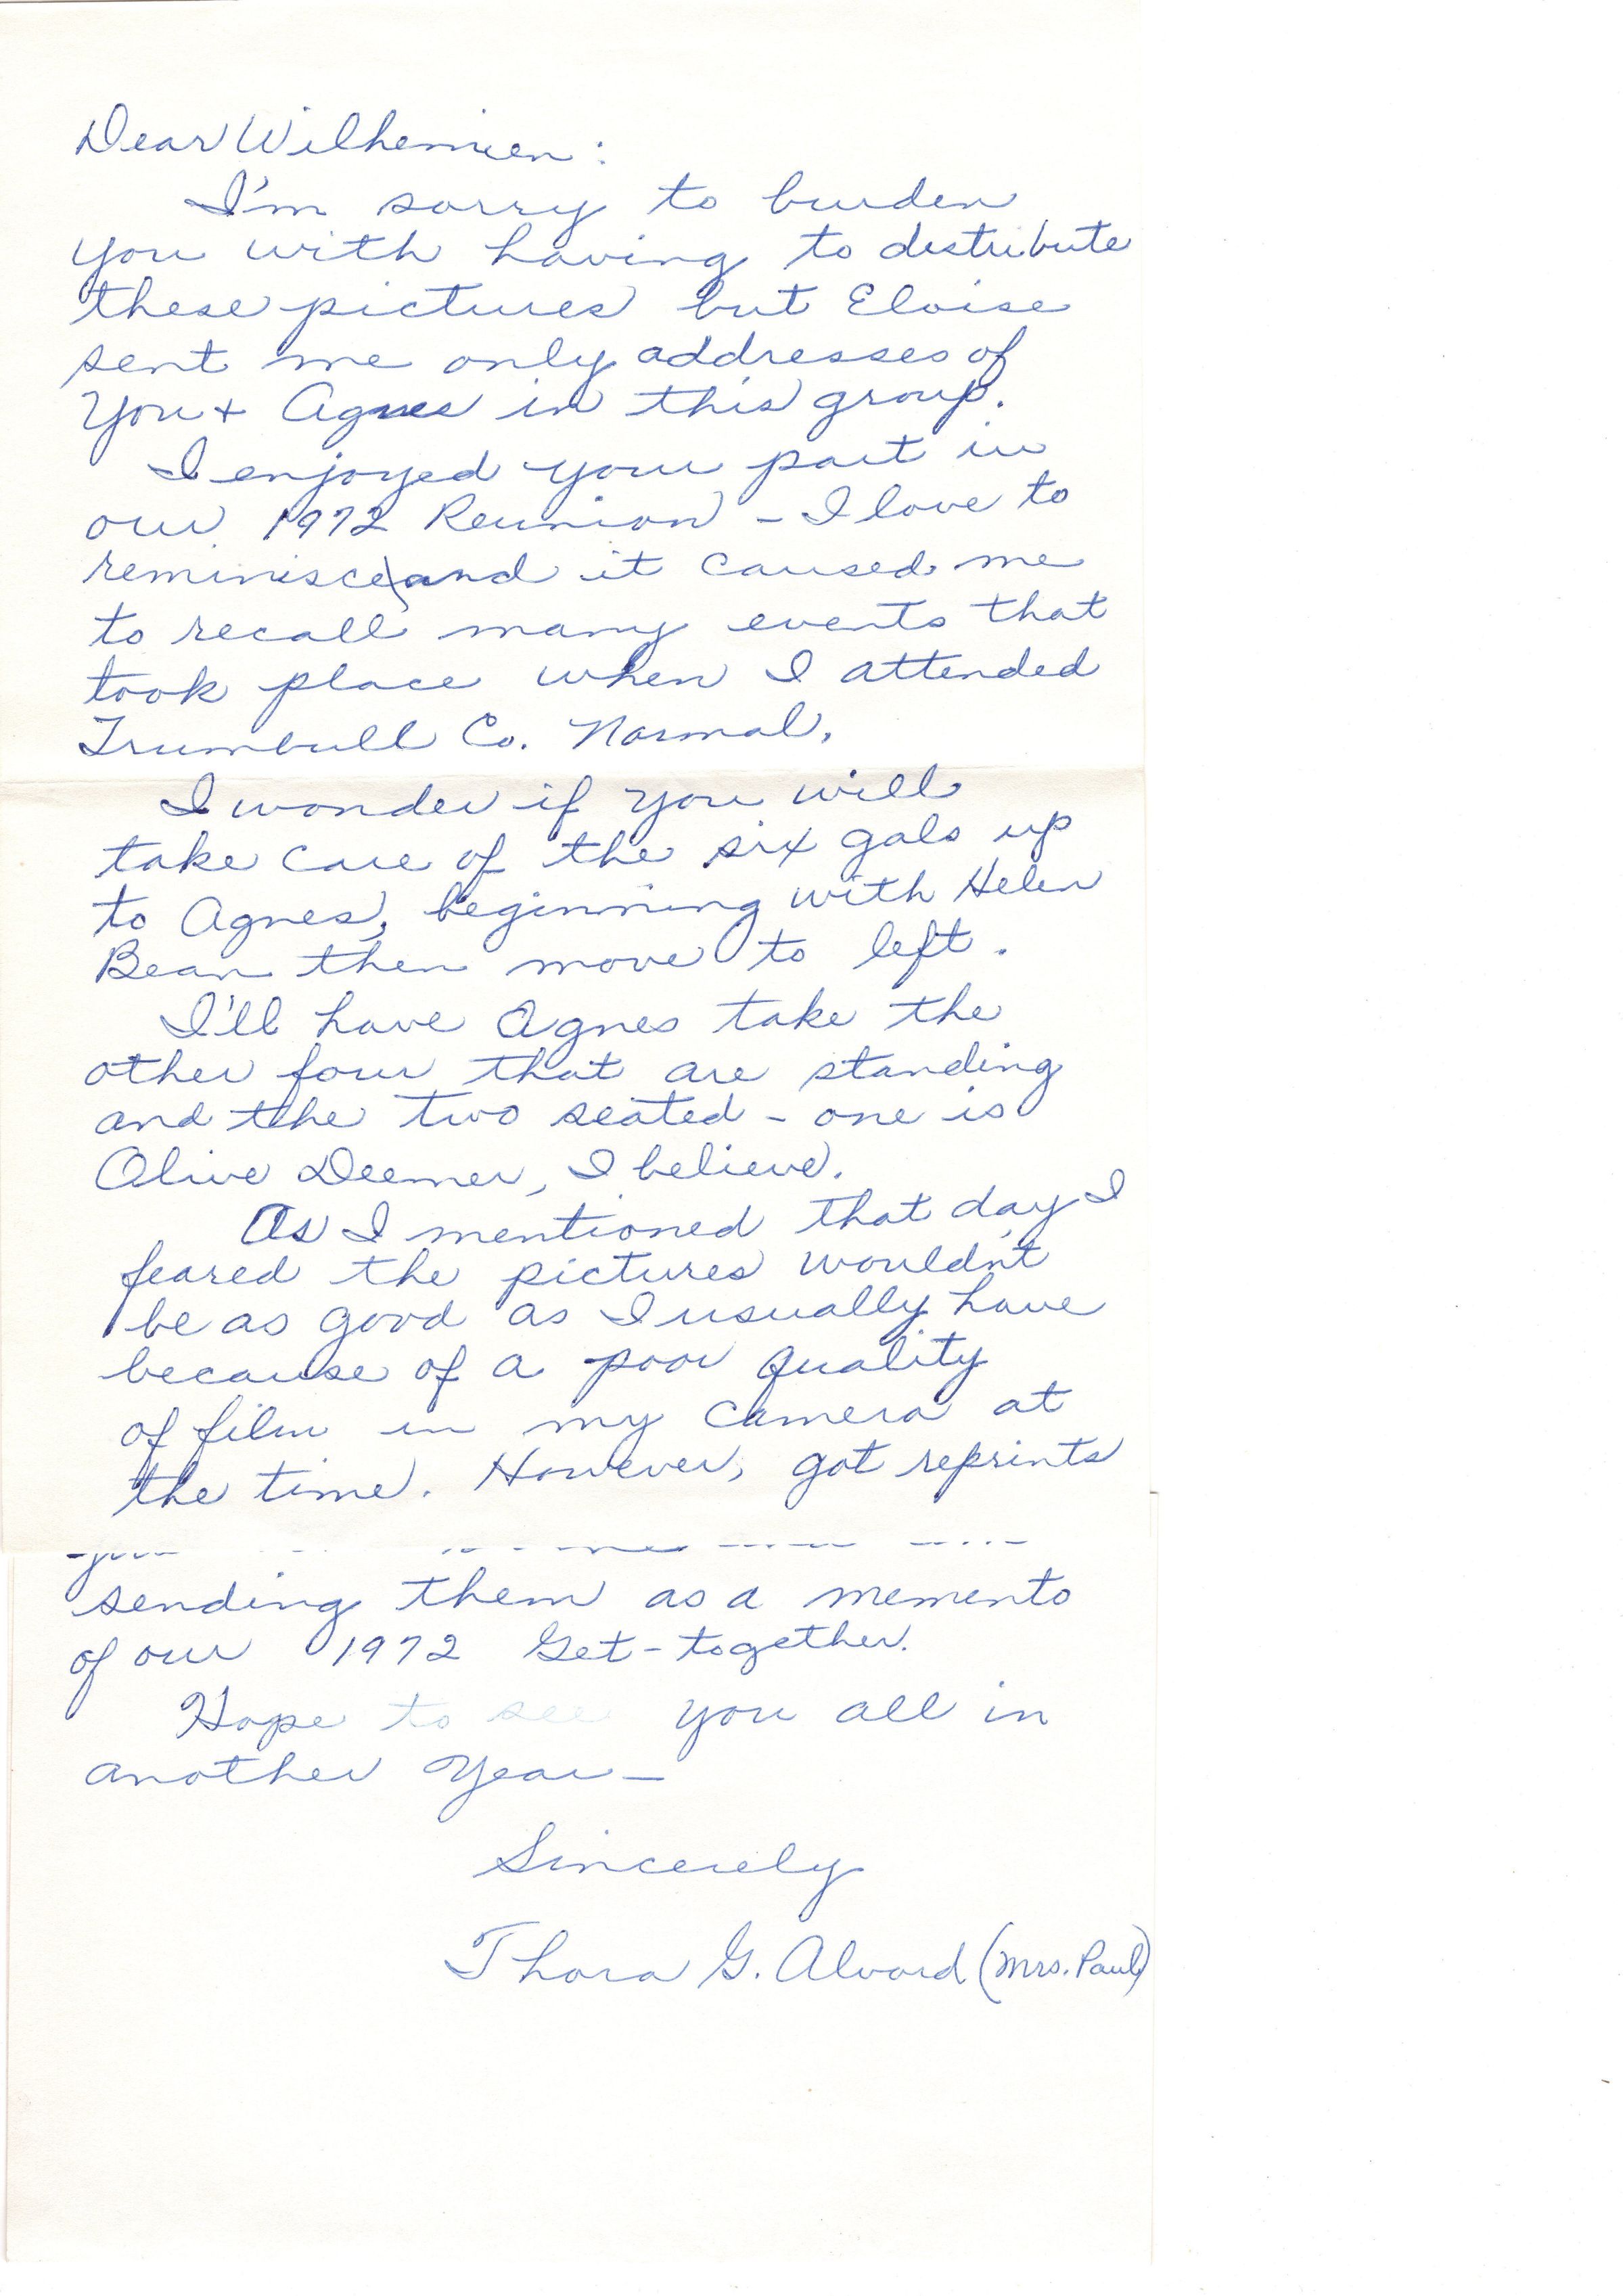 Dear Wilhemien:
I'm sorry to burden
you with having to distribute
these pictures but Eloise
sent me only addresses of
you + Agnes in this group.
I enjoyed your part in
our 1972 Reunion - I love to
reminisce and it caused me
to recall many events that
took place when I attended
Trumbull Co. Normal.
I wonder if you will
take care of the six gals up
to Agnes, beginning with Helen
Bean then move to left.
I'll have Agnes take the
other four that are standing
and the two seated - one is
Olive Deemer, I believe.
As I mentioned that day I
feared the pictures wouldn't
be as good as I usually have
because of a poor quality
of film in my camera at
the time. However, got reprints
sending them as a memento
of our 1972 Get-together.
Hope to see you all in
another year -
Sincerely
Thora G. Alvord (Mrs. Paul)